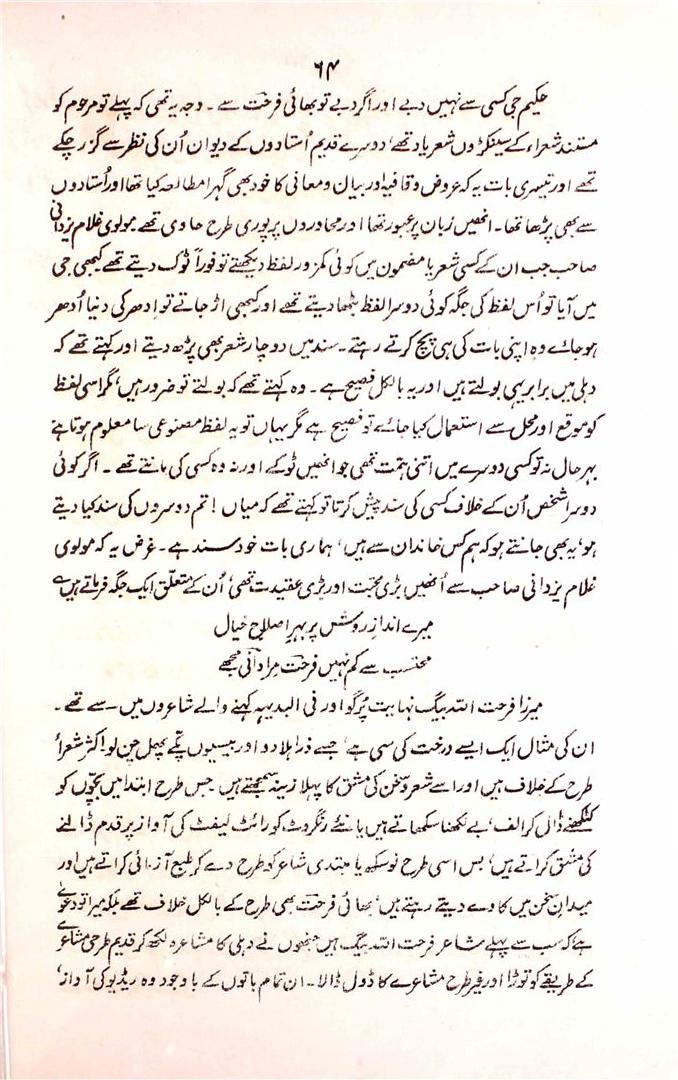 ۶۴
حکیم جی کسی سے نہیں دبے اور اگر دبے تو بھائی فرحت سے ۔ وجہ یہ تھی کہ پہلے تو مرحوم کو
مستند شعراء کے سینکڑوں شعر یاد تھے، دوسرے قدیم اُستادوں کے دیوان اُن کی نظر سے گزر چکے
تھے اور تیسری بات یہ کہ عروض و قافیہ اور بیان و معانی کا خود بھی گہرا مطالعہ کیا تھا اور اُستادوں
سے بھی پڑھا تھا۔ انھیں زبان پر عبور تھا اور محاوروں پر پوری طرح حاوی تھے۔ مولوی غلام یزدانی
صاحب جب ان کے کسی شعر یا مضمون میں کوئی کمزور لفظ دیکھتے تو فوراً ٹوک دیتے تھے کبھی جی
میں آیا تو اُس لفظ کی جگہ کوئی دوسرا لفظ بٹھا دیتے تھے اور کبھی اڑ جاتے تو اِدھر کی دنیا اُدھر
ہو جائے وہ اپنی بات کی ہی پیچ کرتے رہتے۔ سند میں دو چار شعر بھی پڑھ دیتے اور کہتے تھے کہ
دہلی میں برابر یہی بولتے ہیں اور یہ بالکل فصیح ہے ۔ وہ کہتے تھے کہ بولتے تو ضرور ہیں، مگر اسی لفظ
کو موقع اور محل سے استعمال کیا جائے تو فصیح ہے مگر یہاں تو یہ لفظ مصنوعی سا معلوم ہوتا ہے
بہر حال نہ تو کسی دوسرے میں اتنی ہمت تھی جو انھیں ٹوکے اور نہ وہ کسی کی مانتے تھے ۔ اگر کوئی
دوسرا شخص اُن کے خلاف کسی کی سند پیش کرتا تو کہتے تھے کہ میاں ! تم دوسروں کی سند کیا دیتے
ہو، یہ بھی جانتے ہو کہ ہم کس خاندان سے ہیں، ہماری بات خود سند ہے۔ غرض یہ کہ مولوی
غلام یزدانی صاحب سے اُنھیں بڑی محبت اور بڑی عقیدت تھی، اُن کے متعلق ایک جگہ فرماتے ہیں ؎
میرے اندازِ روشس پر بہرِ اصلاحِ خیال
محتسب سے کم نہیں فرحت مرادانی مجھے
میرزا فرحت اللہ بیگ نہایت پُرگو اور فی البدیہہ کہنے والے شاعروں میں سے تھے ۔
ان کی مثال ایک ایسے درخت کی سی ہے، جسے ذرا ہلا دو اور بیسیوں پکّے پھل چن لو! اکثر شعراُ
طرح کے خلاف ہیں اور اسے شعر و سخن کی مشق کا پہلا زینہ سمجھتے ہیں۔ جس طرح ابتدا میں بچّوں کو
کٹکھنے ڈال کر الف، بے لکھنا سکھاتے ہیں یا نئے رنگروٹ کو رائٹ لیفٹ کی آواز پر قدم ڈالنے
کی مشق کراتے ہیں، بس اسی طرح نوسکھ یا مبتدی شاعر کو طرح دے کر طبع آزمائی کراتے ہیں اور
میدانِ سخن میں کاوے دیتے رہتے ہیں، بھائی فرحت بھی طرح کے بالکل خلاف تھے بلکہ میرا تو دعویٰ
ہے کہ سب سے پہلے شاعر فرحت اللہ بیگ ہیں جنھوں نے دہلی کا مشاعرہ لکھ کر قدیم طرحی مشاعرے
کے طریقے کو توڑا اور غیر طرح مشاعرے کا ڈول ڈالا۔ ان تمام باتوں کے باوجود وہ ریڈیو کی آواز،